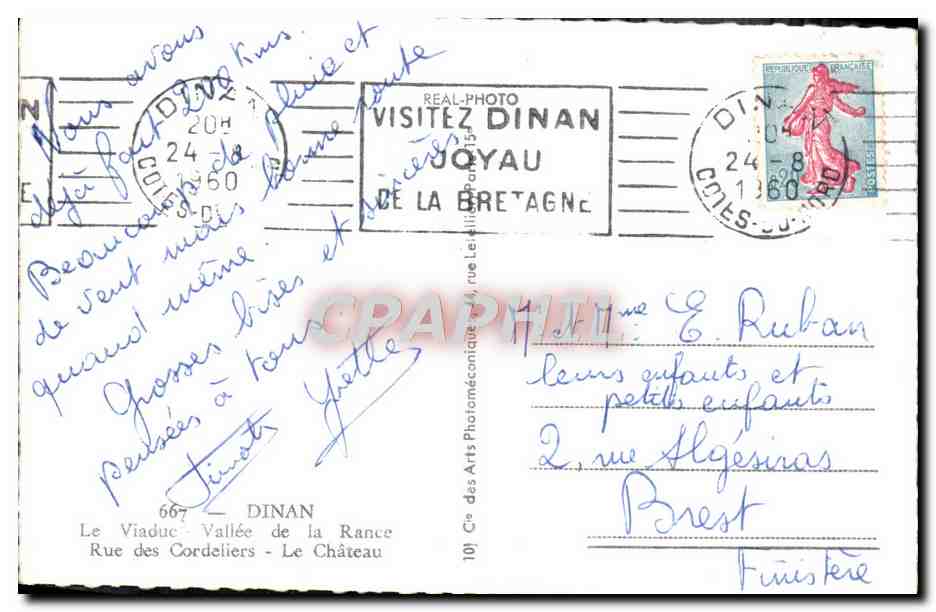 Nous avons
déjà fait 200 Kms.
Beaucoup de pluie et
de vent mais bonne route
quand même.
Grosses bises et sincères
pensées à tous
667 — DINAN
Le Viaduc - Vallée de la Rance
Rue des Cordeliers - Le Château
REAL-PHOTO
VISITEZ DINAN
JOYAU
DE LA BRETAGNE
DINAN
20H
24 - 8
1960
COTES-DU-NORD
REPUBLIQUE FRANÇAISE
POSTES
DINAN
24 - 8
1960
COTES-DU-NORD
CPARPHIL
M. et Mme E. Ruban
leurs enfants et
petits enfants
2, rue Algésiras
Brest
Finistère